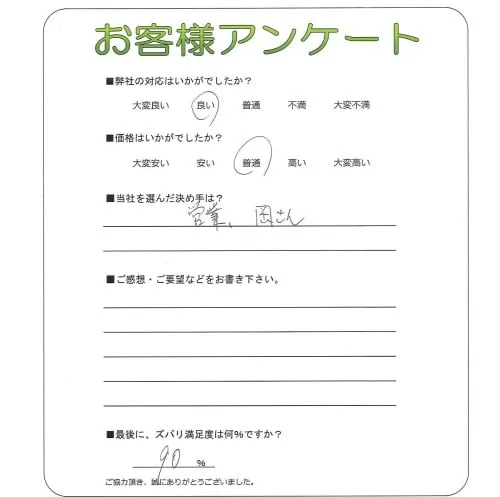 お客様アンケート
■弊社の対応はいかがでしたか？
大変良い 良い 普通 不満 大変不満
■価格はいかがでしたか？
大変安い 安い 普通 高い 大変高い
■当社を選んだ決め手は？
営業、岡さん
■ご感想・ご要望などをお書き下さい。
■最後に、ズバリ満足度は何%ですか？
90 %
ご協力頂き、誠にありがとうございました。